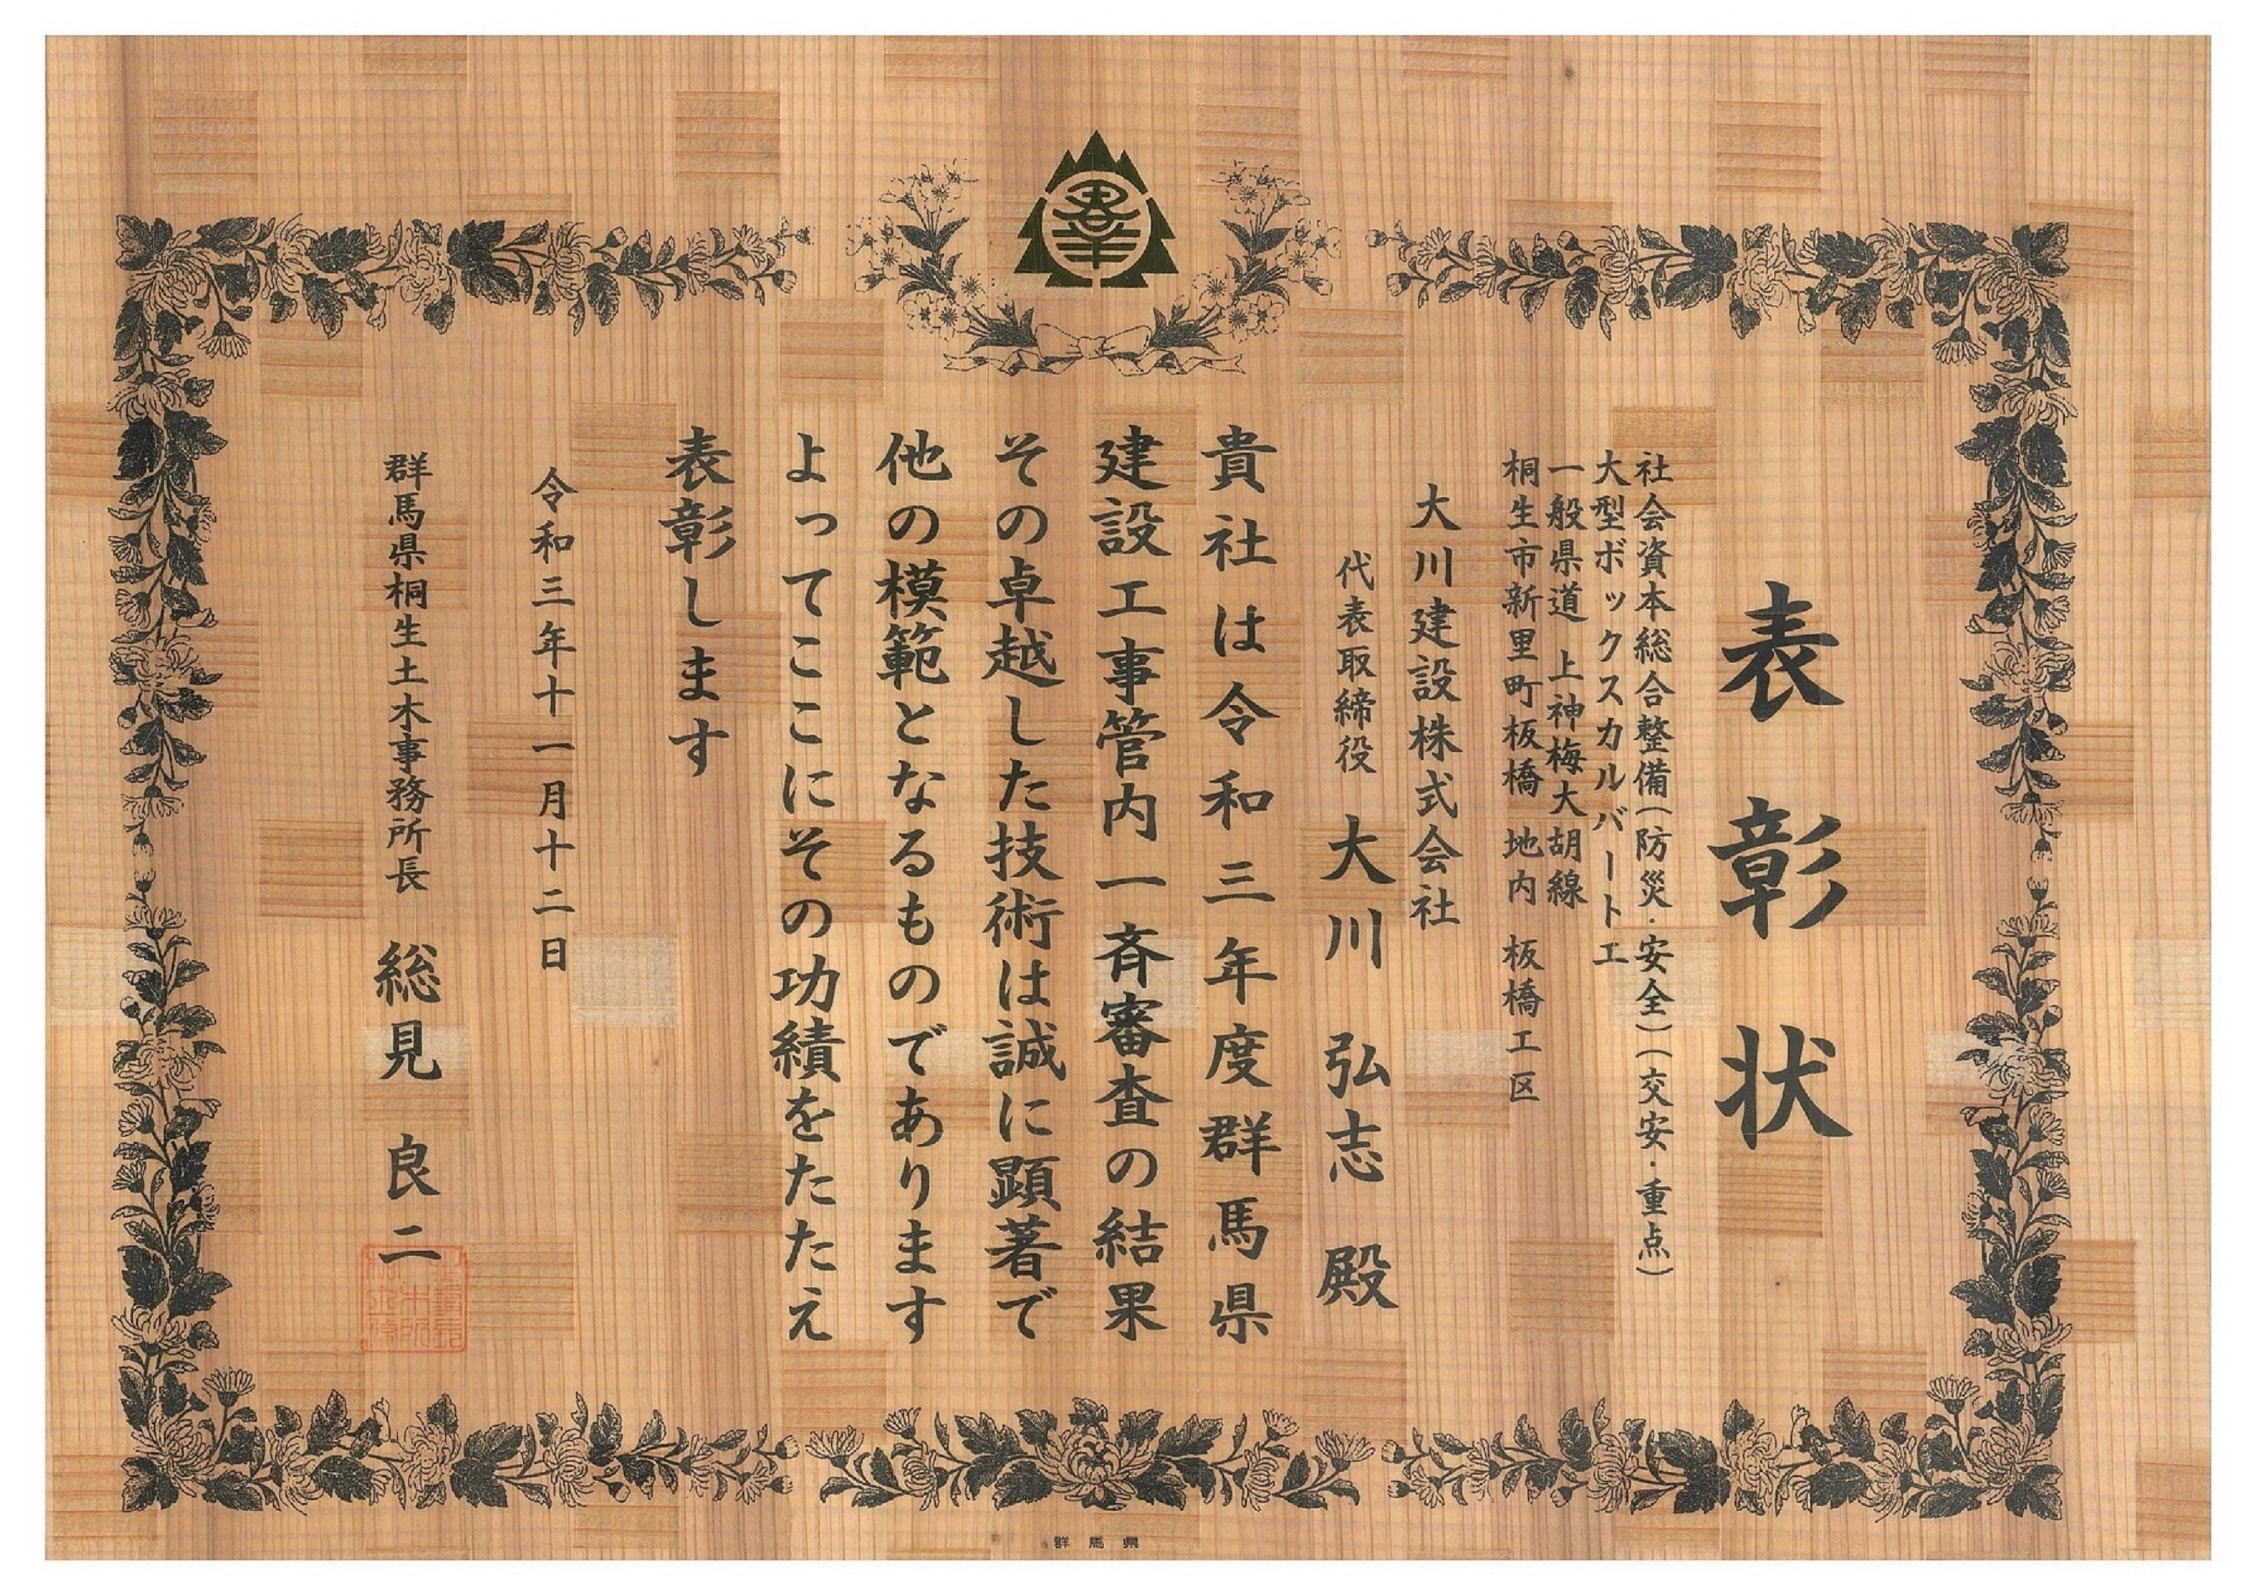 表彰状
社会資本総合整備(防災・安全)(交安・重点)
大型ボックスカルバート工
一般県道 上神梅大胡線
桐生市新里町板橋 地内 板橋工区
大川建設株式会社
代表取締役 大川 弘志 殿
貴社は令和三年度群馬県
建設工事管内一斉審査の結果
その卓越した技術は誠に顕著で
他の模範となるものであります
よってここにその功績をたたえ
表彰します
令和三年十一月十二日
群馬県桐生土木事務所長 総見 良二
群馬県